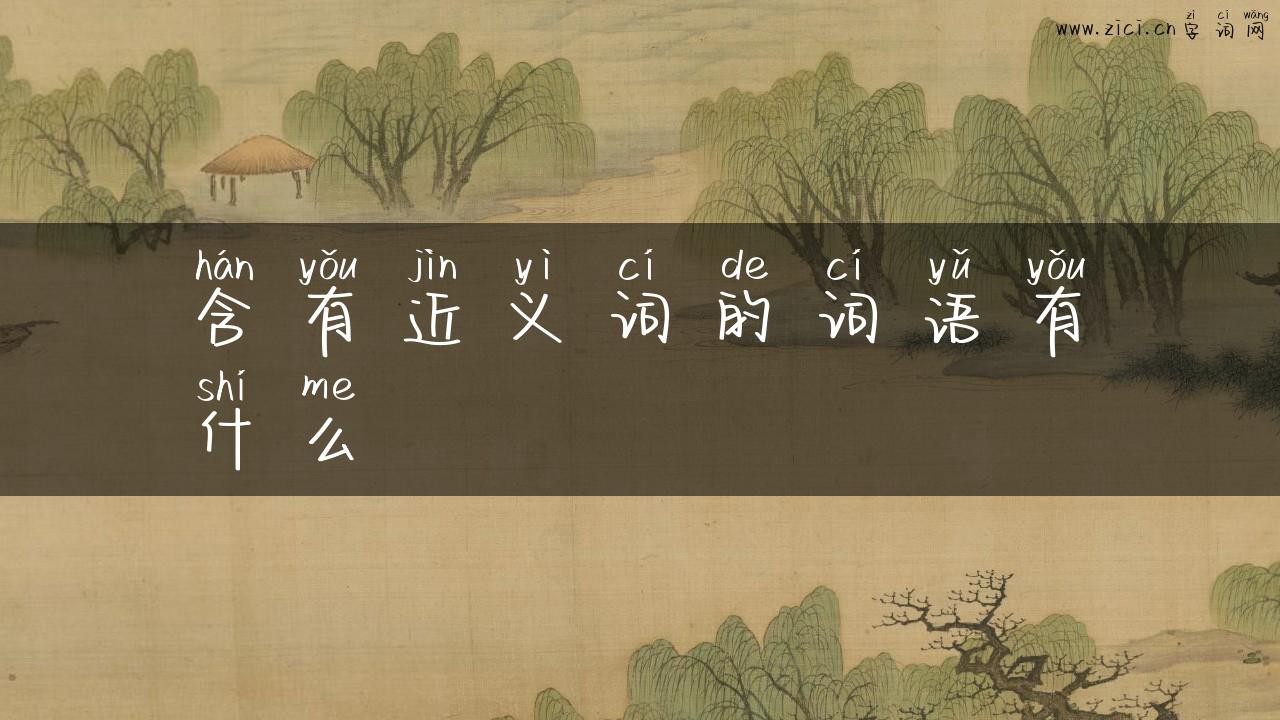 zì cí wǎng
www.zici.cn 字词网
hán yǒu jìn yì cí de cí yǔ yǒu
含有近义词的词语有
shí me
什么